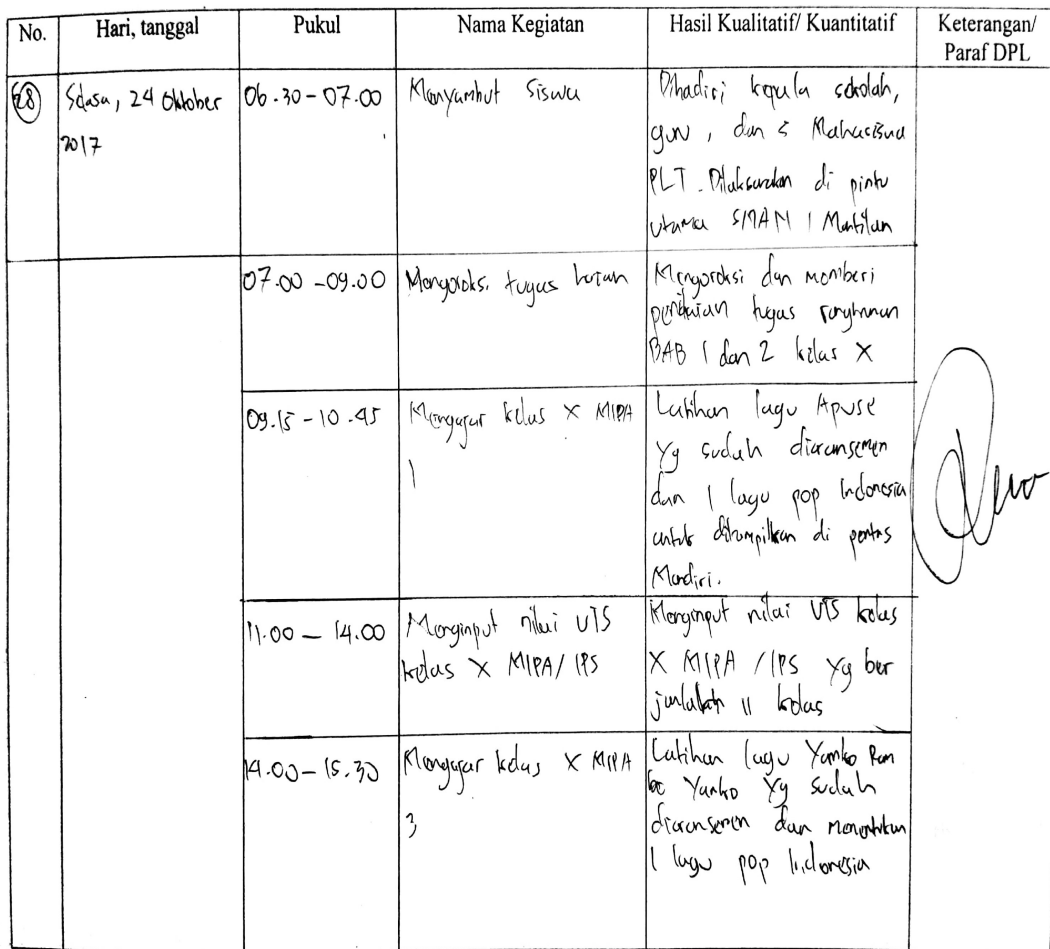 No. Hari, tanggal Pukul Nama Kegiatan Hasil Kualitatif/ Kuantitatif Keterangan/
Paraf DPL
28 Selasa, 24 Oktober 06.30 - 07.00 Menyambut Siswa Dihadiri kepala sekolah,
2017 guru, dan 5 Mahasiswa
PLT. Dilaksanakan di pintu
utama SMAN 1 Muntilan
07.00 - 09.00 Mengoreksi tugas harian Mengoreksi dan memberi
penilaian tugas rangkuman
BAB 1 dan 2 kelas X
09.15 - 10.45 Mengajar kelas X MIPA Latihan lagu Apuse
1 yg sudah diaransemen
dan 1 lagu pop Indonesia
untuk ditampilkan di pentas
Mandiri.
11.00 - 14.00 Menginput nilai UTS Menginput nilai UTS kelas
kelas X MIPA/ IPS X MIPA / IPS yg ber
jumlah 11 kelas
14.00 - 15.30 Mengajar kelas X MIPA Latihan lagu Yamko Ram
3 be Yamko yg sudah
diaransemen dan menentukan
1 lagu pop Indonesia